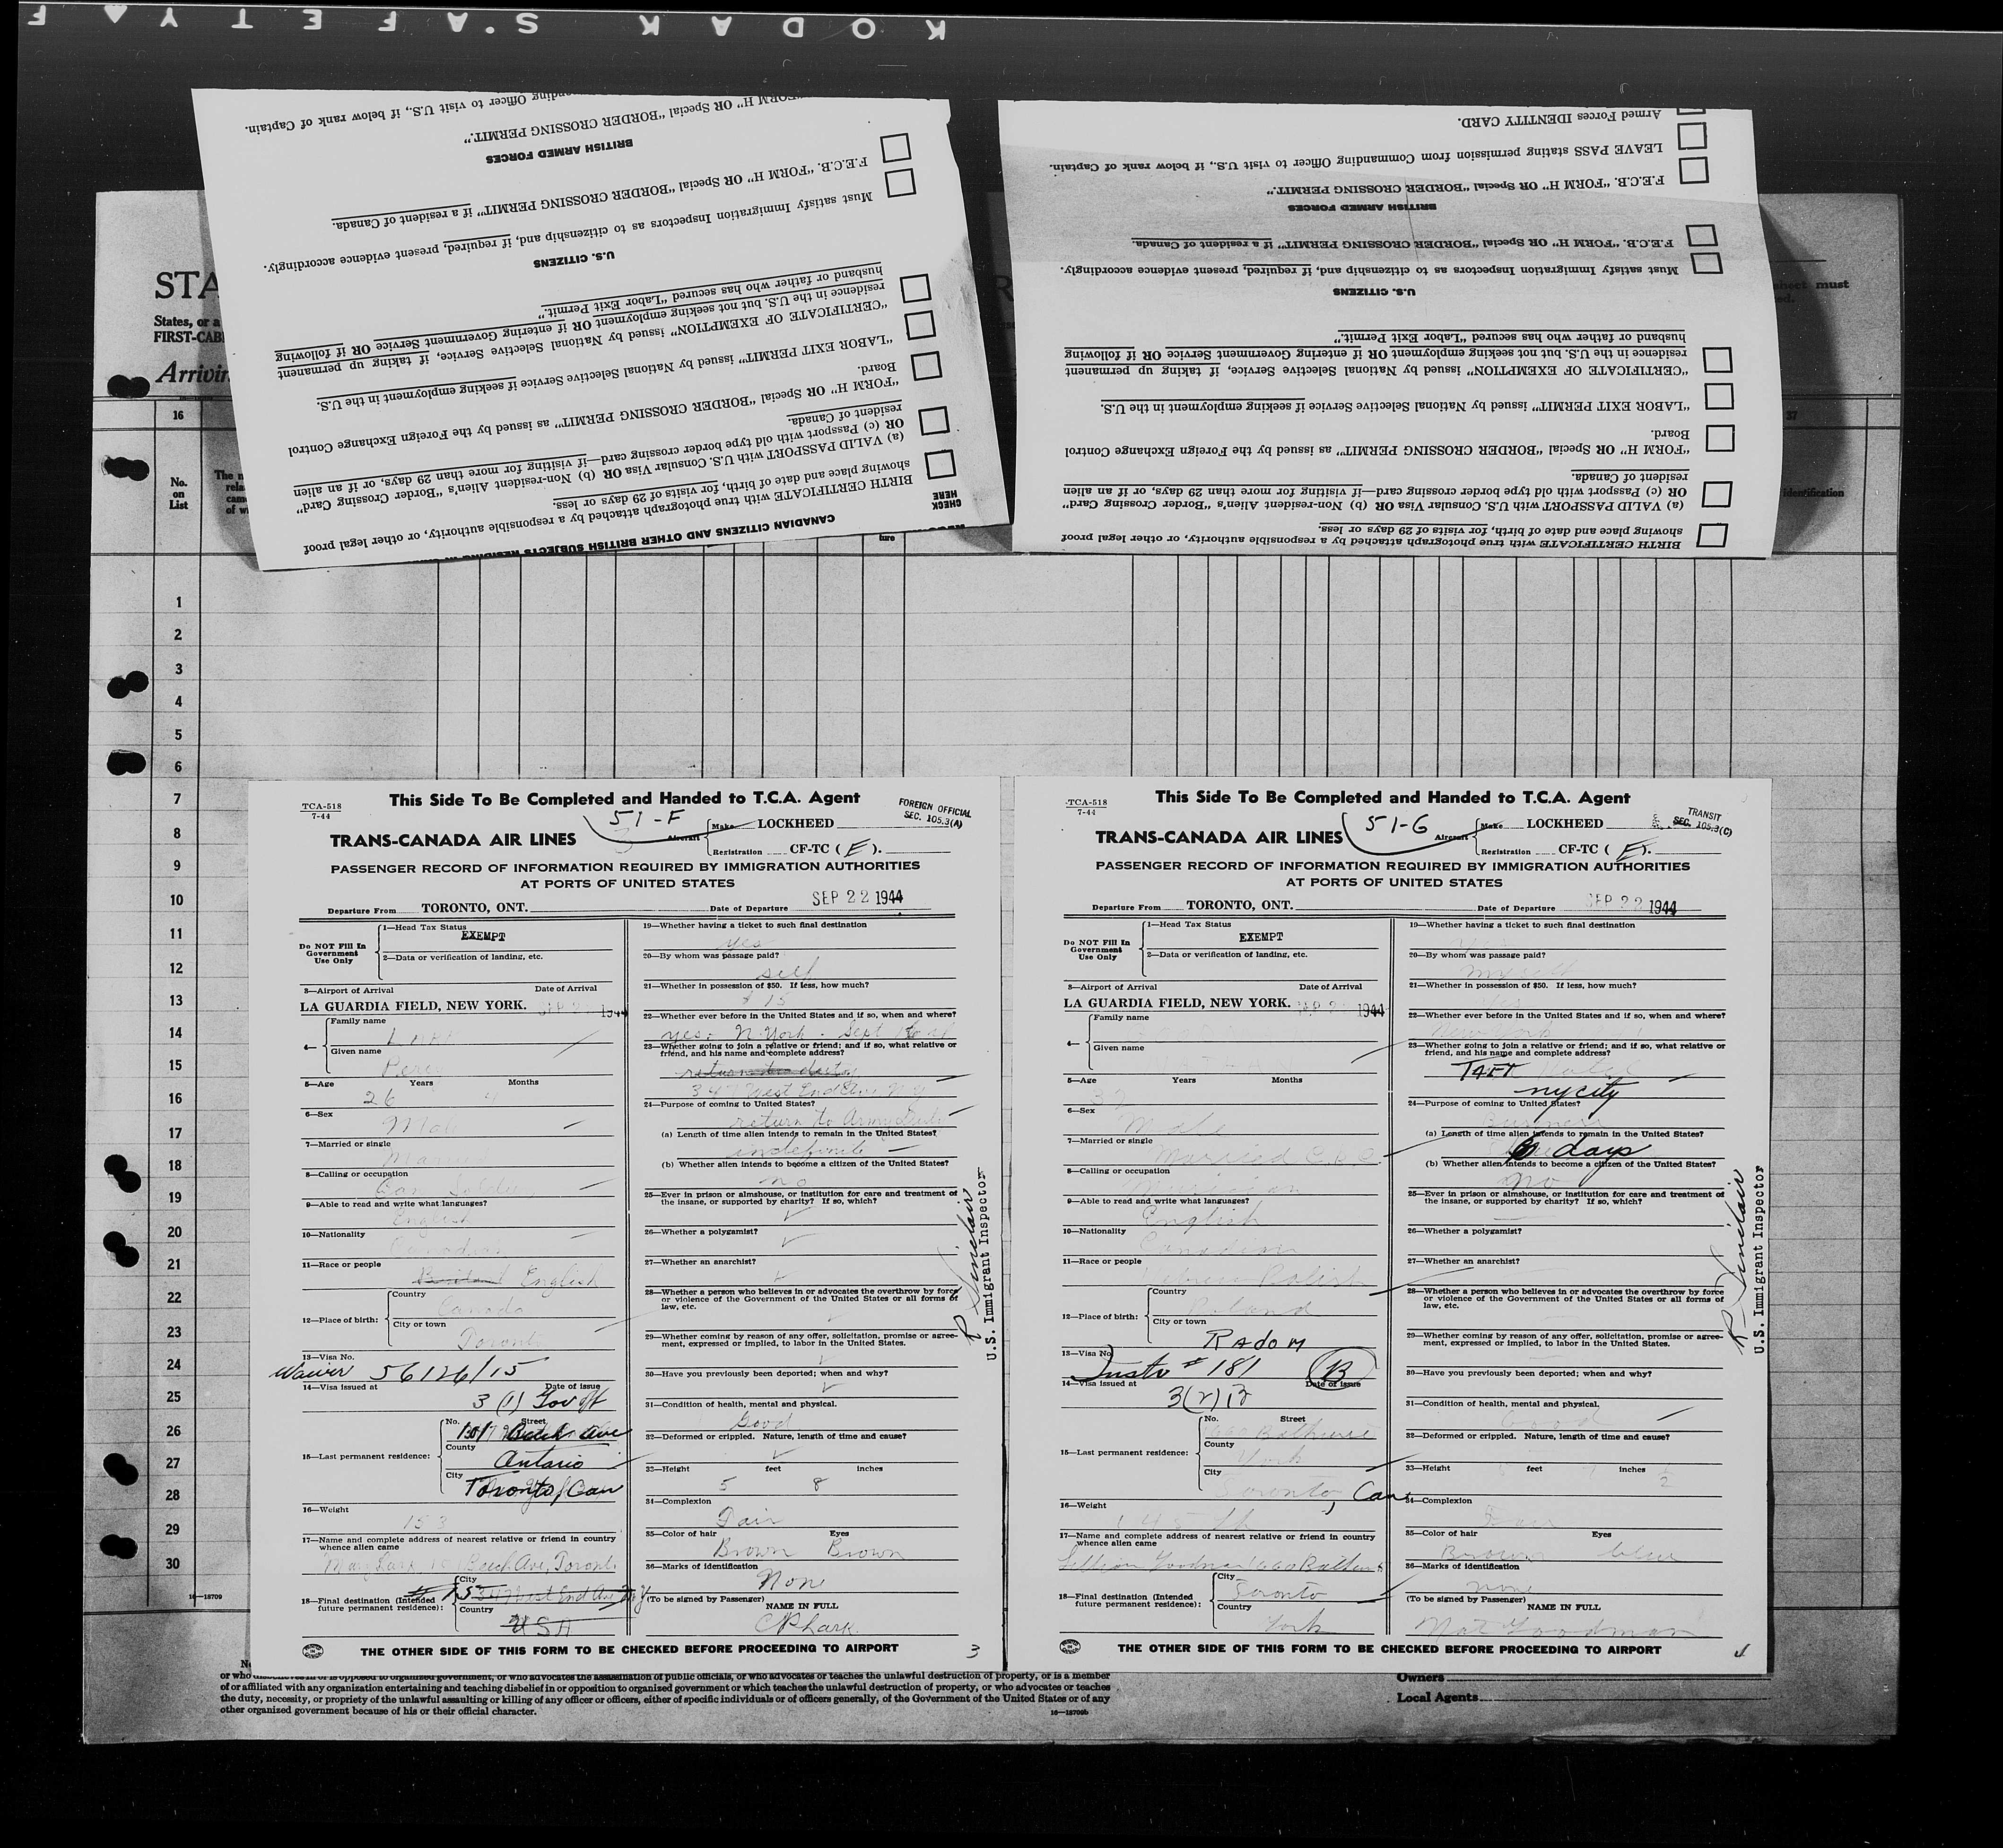 KODAK S'AFETY F
Officer to visit U.S., if below rank of Captain.
"FORM H" OR Special "BORDER CROSSING PERMIT."
BRITISH ARMED FORCES
F.E.C.B. "FORM H" OR Special "BORDER CROSSING PERMIT" if a resident of Canada.
Must satisfy Immigration Inspectors as to citizenship and, if required, present evidence accordingly.
U.S. CITIZENS
husband or father who has secured "Labor Exit Permit."
residence in the U.S. but not seeking employment OR if entering Government Service OR if following
"CERTIFICATE OF EXEMPTION" issued by National Selective Service, if taking up permanent
"LABOR EXIT PERMIT" issued by National Selective Service if seeking employment in the U.S.
Board.
"FORM H" OR Special "BORDER CROSSING PERMIT" as issued by the Foreign Exchange Control
resident of Canada.
OR (c) Passport with old type border crossing card—if visiting for more than 29 days, or if an alien
(a) VALID PASSPORT with U.S. Consular Visa OR (b) Non-resident Alien's "Border Crossing Card"
showing place and date of birth, for visits of 29 days or less.
BIRTH CERTIFICATE with true photograph attached by a responsible authority, or other legal proof
CHECK HERE
CANADIAN CITIZENS AND OTHER BRITISH SUBJECTS RESIDING IN
Armed Forces IDENTITY CARD.
LEAVE PASS stating permission from Commanding Officer to visit U.S., if below rank of Captain.
F.E.C.B. "FORM H" OR Special "BORDER CROSSING PERMIT."
BRITISH ARMED FORCES
F.E.C.B. "FORM H" OR Special "BORDER CROSSING PERMIT" if a resident of Canada.
Must satisfy Immigration Inspectors as to citizenship and, if required, present evidence accordingly.
U.S. CITIZENS
husband or father who has secured "Labor Exit Permit."
residence in the U.S. but not seeking employment OR if entering Government Service OR if following
"CERTIFICATE OF EXEMPTION" issued by National Selective Service, if taking up permanent
"LABOR EXIT PERMIT" issued by National Selective Service if seeking employment in the U.S.
Board.
"FORM H" OR Special "BORDER CROSSING PERMIT" as issued by the Foreign Exchange Control
resident of Canada.
OR (c) Passport with old type border crossing card—if visiting for more than 29 days, or if an alien
(a) VALID PASSPORT with U.S. Consular Visa OR (b) Non-resident Alien's "Border Crossing Card"
showing place and date of birth, for visits of 29 days or less.
BIRTH CERTIFICATE with true photograph attached by a responsible authority, or other legal proof
STA
States, or a
FIRST-CAB
Arrivin
must
16
37
No. on List
identification
1
2
3
4
5
6
7
8
9
10
11
12
13
14
15
16
17
18
19
20
21
22
23
24
25
26
27
28
29
30
16—18709
TCA-518
7-44
This Side To Be Completed and Handed to T.C.A. Agent
FOREIGN OFFICIAL
SEC. 105.3(A)
51-F
TRANS-CANADA AIR LINES
Aircraft Make LOCKHEED
Registration CF-TC ( E ).
PASSENGER RECORD OF INFORMATION REQUIRED BY IMMIGRATION AUTHORITIES
AT PORTS OF UNITED STATES
Departure From TORONTO, ONT. Date of Departure SEP 22 1944
Do NOT Fill In Government Use Only
1—Head Tax Status
EXEMPT
2—Data or verification of landing, etc.
3—Airport of Arrival Date of Arrival
LA GUARDIA FIELD, NEW YORK. SEP 2 1944
4—
Family name
Given name
Percy
5—Age Years Months
26
6—Sex
Male
7—Married or single
Married
8—Calling or occupation
9—Able to read and write what languages?
English
10—Nationality
Canadian
11—Race or people
English
12—Place of birth:
Country
Canada
City or town
Toronto
13—Visa No.
Waiver 56126/15
14—Visa issued at Date of issue
3 (1) Gov off
15—Last permanent residence:
No. Street
Beech Ave
County
Ontario
City
Toronto, Can
16—Weight
153
17—Name and complete address of nearest relative or friend in country
whence alien came
Beech Ave, Toronto
18—Final destination (Intended future permanent residence):
City
West End Ave N.Y
Country
USA
19—Whether having a ticket to such final destination
yes
20—By whom was passage paid?
self
21—Whether in possession of $50. If less, how much?
$ 15
22—Whether ever before in the United States and if so, when and where?
yes. N. York. Sept
23—Whether going to join a relative or friend; and if so, what relative or
friend, and his name and complete address?
West End Ave N.Y
24—Purpose of coming to United States?
return to Army
(a) Length of time alien intends to remain in the United States?
indefinite
(b) Whether alien intends to become a citizen of the United States?
no
25—Ever in prison or almshouse, or institution for care and treatment of
the insane, or supported by charity? If so, which?
26—Whether a polygamist?
27—Whether an anarchist?
28—Whether a person who believes in or advocates the overthrow by force
or violence of the Government of the United States or all forms of
law, etc.
29—Whether coming by reason of any offer, solicitation, promise or agree-
ment, expressed or implied, to labor in the United States.
30—Have you previously been deported; when and why?
31—Condition of health, mental and physical.
Good
32—Deformed or crippled. Nature, length of time and cause?
33—Height feet inches
5 8
34—Complexion
Fair
35—Color of hair Eyes
Brown Brown
36—Marks of identification
None
(To be signed by Passenger)
NAME IN FULL
R Sinclair
U.S. Immigrant Inspector
THE OTHER SIDE OF THIS FORM TO BE CHECKED BEFORE PROCEEDING TO AIRPORT
3
TCA-518
7-44
This Side To Be Completed and Handed to T.C.A. Agent
TRANSIT
SEC. 105.3(C)
51-G
TRANS-CANADA AIR LINES
Aircraft Make LOCKHEED
Registration CF-TC ( E ).
PASSENGER RECORD OF INFORMATION REQUIRED BY IMMIGRATION AUTHORITIES
AT PORTS OF UNITED STATES
Departure From TORONTO, ONT. Date of Departure SEP 22 1944
Do NOT Fill In Government Use Only
1—Head Tax Status
EXEMPT
2—Data or verification of landing, etc.
3—Airport of Arrival Date of Arrival
LA GUARDIA FIELD, NEW YORK. SEP 2 1944
4—
Family name
Given name
5—Age Years Months
6—Sex
Male
7—Married or single
Married
8—Calling or occupation
9—Able to read and write what languages?
English
10—Nationality
Canadian
11—Race or people
Hebrew Polish
12—Place of birth:
Country
Poland
City or town
RAdOM
13—Visa No.
# 181 B
14—Visa issued at Date of issue
3(2)B
15—Last permanent residence:
No. Street
660 Bathurst
County
York
City
Toronto, Can
16—Weight
145 lb
17—Name and complete address of nearest relative or friend in country
whence alien came
Lillian Goodman 660 Bathurst
18—Final destination (Intended future permanent residence):
City
Toronto
Country
York
19—Whether having a ticket to such final destination
20—By whom was passage paid?
myself
21—Whether in possession of $50. If less, how much?
Yes
22—Whether ever before in the United States and if so, when and where?
New York
23—Whether going to join a relative or friend; and if so, what relative or
friend, and his name and complete address?
TAFT Hotel
ny city
24—Purpose of coming to United States?
Business
(a) Length of time alien intends to remain in the United States?
days
(b) Whether alien intends to become a citizen of the United States?
no
25—Ever in prison or almshouse, or institution for care and treatment of
the insane, or supported by charity? If so, which?
26—Whether a polygamist?
27—Whether an anarchist?
28—Whether a person who believes in or advocates the overthrow by force
or violence of the Government of the United States or all forms of
law, etc.
29—Whether coming by reason of any offer, solicitation, promise or agree-
ment, expressed or implied, to labor in the United States.
30—Have you previously been deported; when and why?
31—Condition of health, mental and physical.
Good
32—Deformed or crippled. Nature, length of time and cause?
33—Height feet inches
34—Complexion
35—Color of hair Eyes
Brown blue
36—Marks of identification
none
(To be signed by Passenger)
NAME IN FULL
Nat Goodman
R Sinclair
U.S. Immigrant Inspector
THE OTHER SIDE OF THIS FORM TO BE CHECKED BEFORE PROCEEDING TO AIRPORT
4
or who disbelieves in or is opposed to organized government, or who advocates the assassination of public officials, or who advocates or teaches the unlawful destruction of property, or is a member
of or affiliated with any organization entertaining and teaching disbelief in or opposition to organized government or which teaches the unlawful destruction of property, or who advocates or teaches
the duty, necessity, or propriety of the unlawful assaulting or killing of any officer or officers, either of specific individuals or of officers generally, of the Government of the United States or of any
other organized government because of his or their official character.
16—18709b
Owners
Local Agents